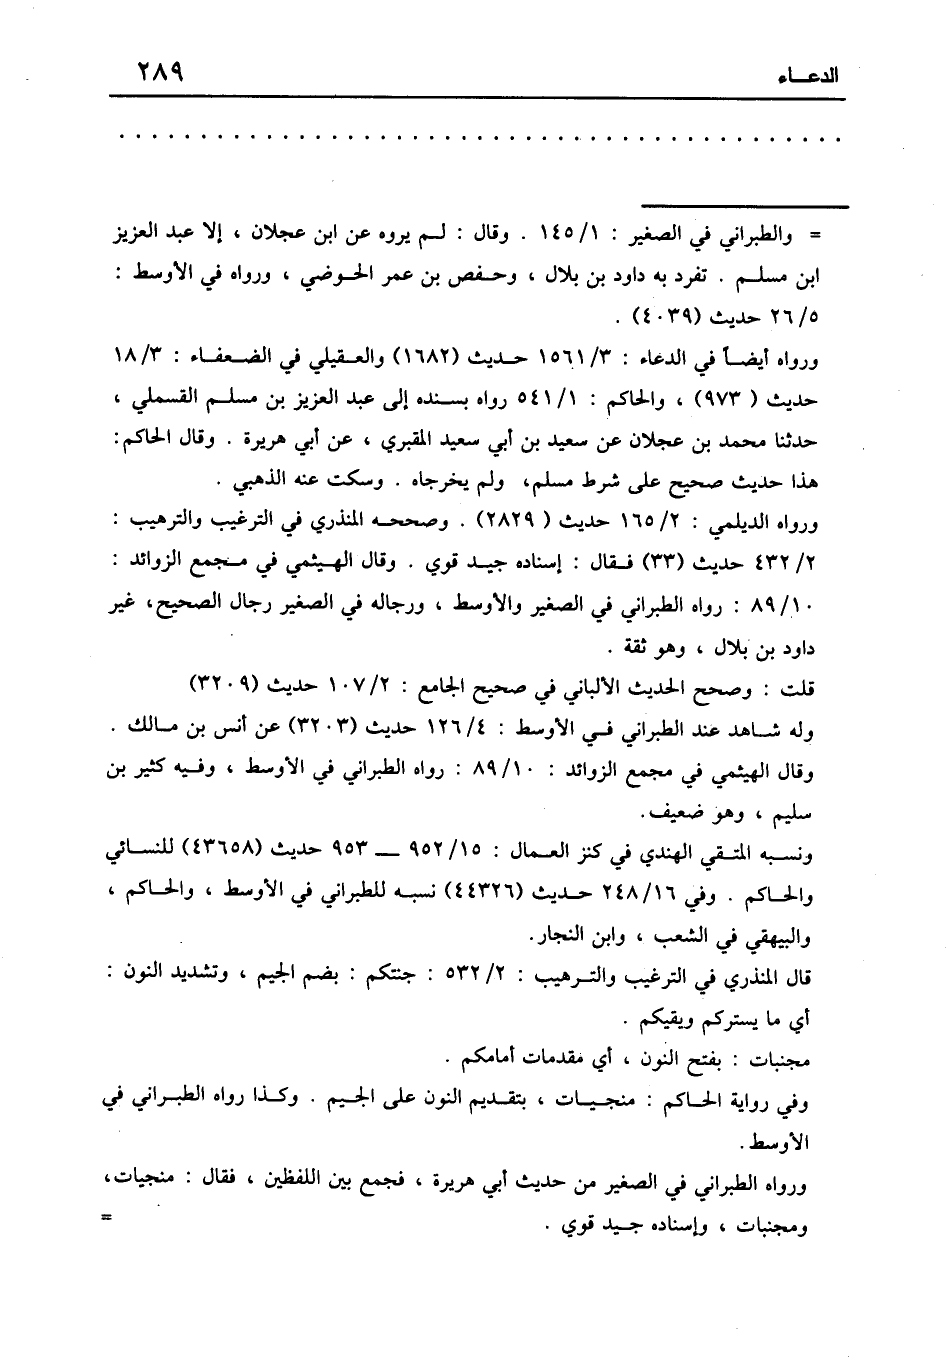 الدعــاء ٢٨٩
. . . . . . . . . . . . . . . . . . . . . . . . . . . . . . . . . . . . . . . . . . . .
= والطبراني في الصغير : ١/ ١٤٥ . وقال : لـم يروه عن ابن عجلان ، إلا عبد العزيز
ابن مسلـم . تفرد به داود بن بلال ، وحـفص بن عمر الحـوضي ، ورواه في الأوسط :
٥/ ٢٦ حديث (٤٠٣٩) .
ورواه أيضـاً في الدعاء : ٣/ ١٥٦١ حـديث (١٦٨٢) والعـقيلي في الضـعفـاء : ٣/ ١٨
حديث ( ٩٧٣) ، والحاكم : ١/ ٥٤١ رواه بسنده إلى عبد العزيز بن مسلـم القسملي ،
حدثنا محمد بن عجلان عن سعيد بن أبي سعيد المقبري ، عن أبي هريرة . وقال الحاكم:
هذا حديث صحيح على شرط مسلم، ولم يخرجاه . وسكت عنه الذهبي .
ورواه الديلمي : ٢/ ١٦٥ حديث ( ٢٨٢٩) . وصححـه المنذري في الترغيب والترهيب :
٢/ ٤٣٢ حديث (٣٣) فـقال : إسناده جيـد قوي . وقال الهـيثمي في مـجمع الزوائد :
١٠/ ٨٩ : رواه الطبراني في الصغير والأوسط ، ورجاله في الصغير رجال الصحيح، غير
داود بن بلال ، وهو ثقة .
قلت : وصحح الحديث الألباني في صحيح الجامع : ٢/ ١٠٧ حديث (٣٢٠٩)
وله شـاهد عند الطبراني فـي الأوسط : ٤/ ١٢٦ حديث (٣٢٠٣) عن أنس بن مـالك .
وقال الهيثمي في مجمع الزوائد : ١٠/ ٨٩ : رواه الطبراني في الأوسط ، وفـيه كثير بن
سليم ، وهو ضعيف.
ونسـبه المتـقي الهندي في كنز العـمال : ١٥/ ٩٥٢ ــ ٩٥٣ حديث (٤٣٦٥٨) للنسـائي
والحـاكم . وفي ١٦/ ٢٤٨ حـديث (٤٤٣٢٦) نسبه للطبراني في الأوسط ، والحـاكم ،
والبيهقي في الشعب ، وابن النجار.
قال المنذري في الترغيب والتـرهيب : ٢/ ٥٣٢ : جنتكم : بضم الجيم ، وتشديد النون :
أي ما يستركم ويقيكم .
مجنبات : بفتح النون ، أي مقدمات أمامكم .
وفي رواية الحـاكم : منجـيـات ، بتقـديم النون على الجـيم . وكـذا رواه الطبـراني في
الأوسط.
ورواه الطبراني في الصغير من حديث أبي هريرة ، فجمع بين اللفظين ، فقال : منجيات،
ومجنبات ، وإسناده جـيد قوي . =